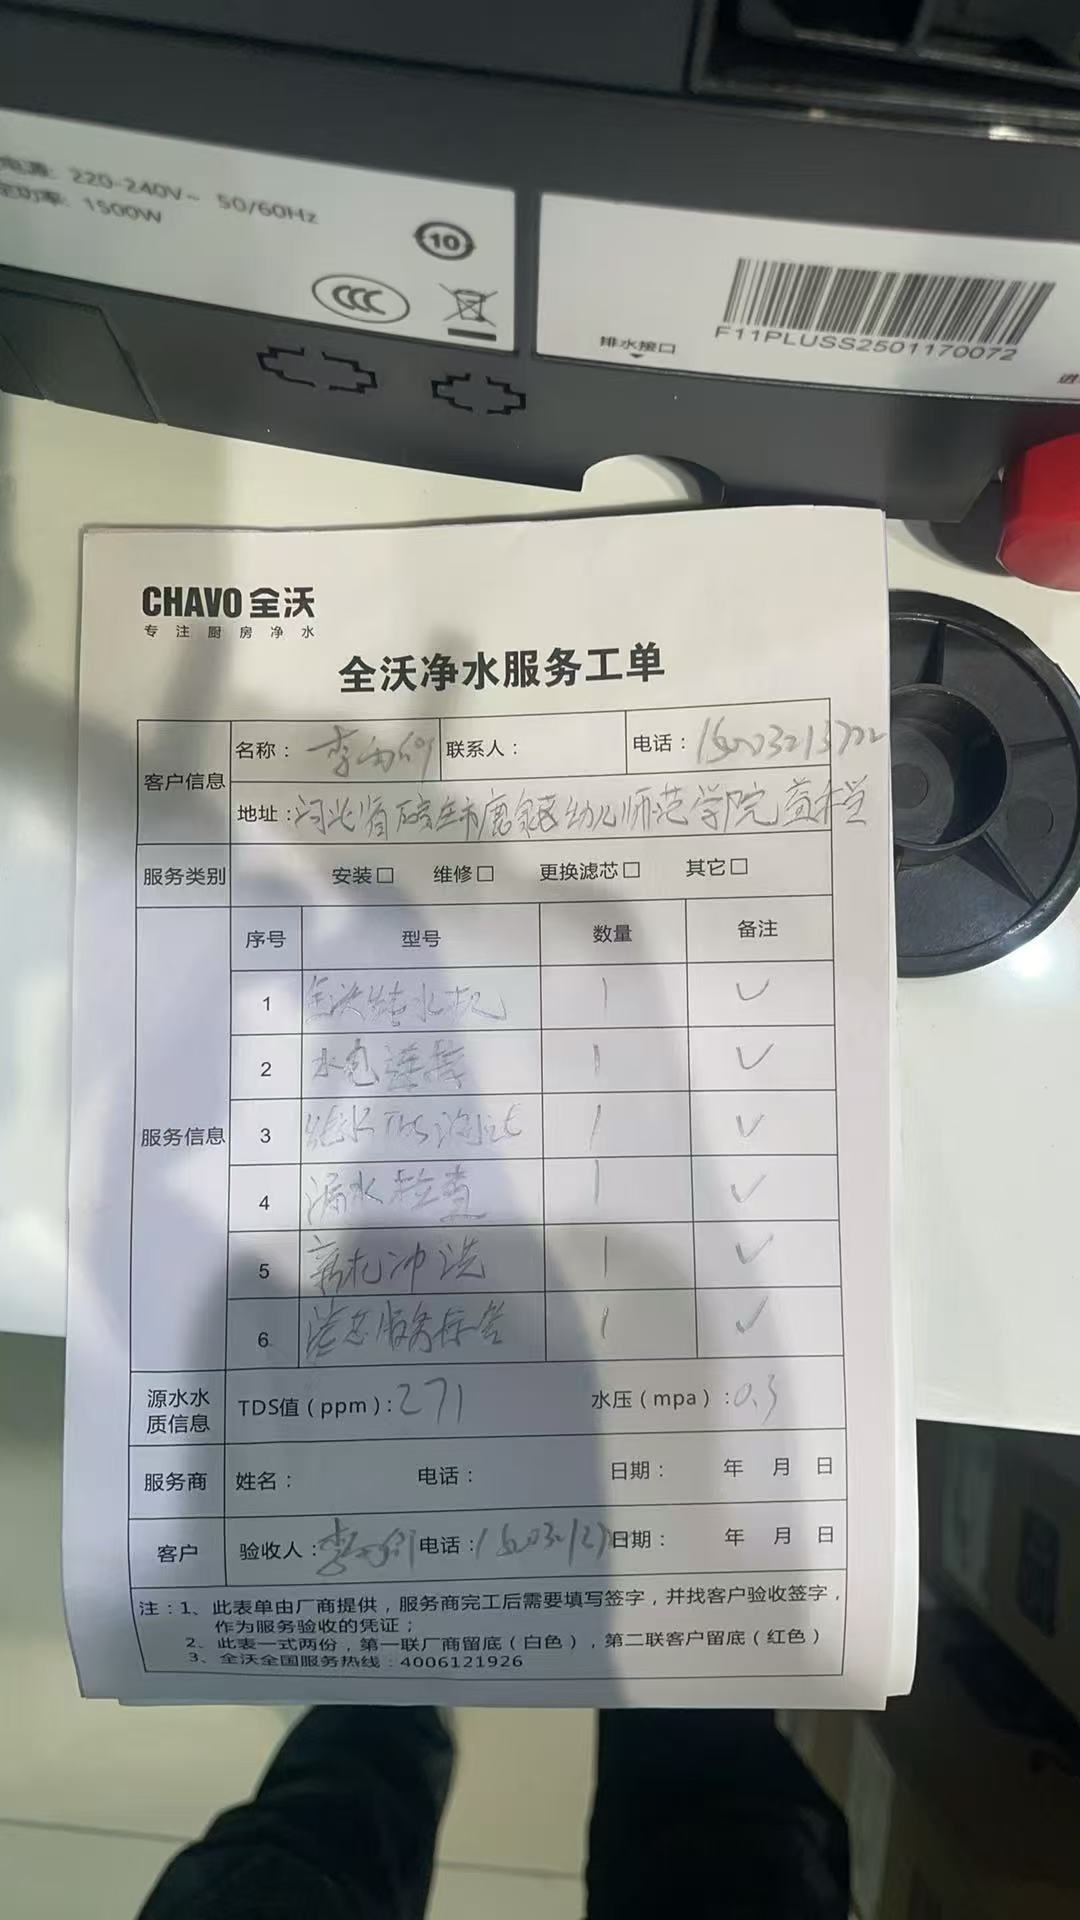 电源: 220-240V~ 50/60Hz
功率: 1500W
10
CCC
排水接口
F11PLUSS2501170072
进
CHAVO 全沃
专注厨房净水
全沃净水服务工单
客户信息
名称： 李
联系人：
电话：
地址：河北省 市鹿泉区幼儿师范学院
服务类别
安装□ 维修□ 更换滤芯□ 其它□
服务信息
序号 型号 数量 备注
1 全沃 水机 1 ✓
2 水电连接 1 ✓
3 TDS测试 1 ✓
4 漏水检查 1 ✓
5 冲洗 1 ✓
6 滤芯服务 1 ✓
源水水质信息
TDS值（ppm）：271 水压（mpa）：0.3
服务商 姓名： 电话： 日期： 年 月 日
客户 验收人：李 电话： 日期： 年 月 日
注：1、此表单由厂商提供，服务商完工后需要填写签字，并找客户验收签字，
作为服务验收的凭证；
2、此表一式两份，第一联厂商留底（白色），第二联客户留底（红色）
3、全沃全国服务热线：4006121926